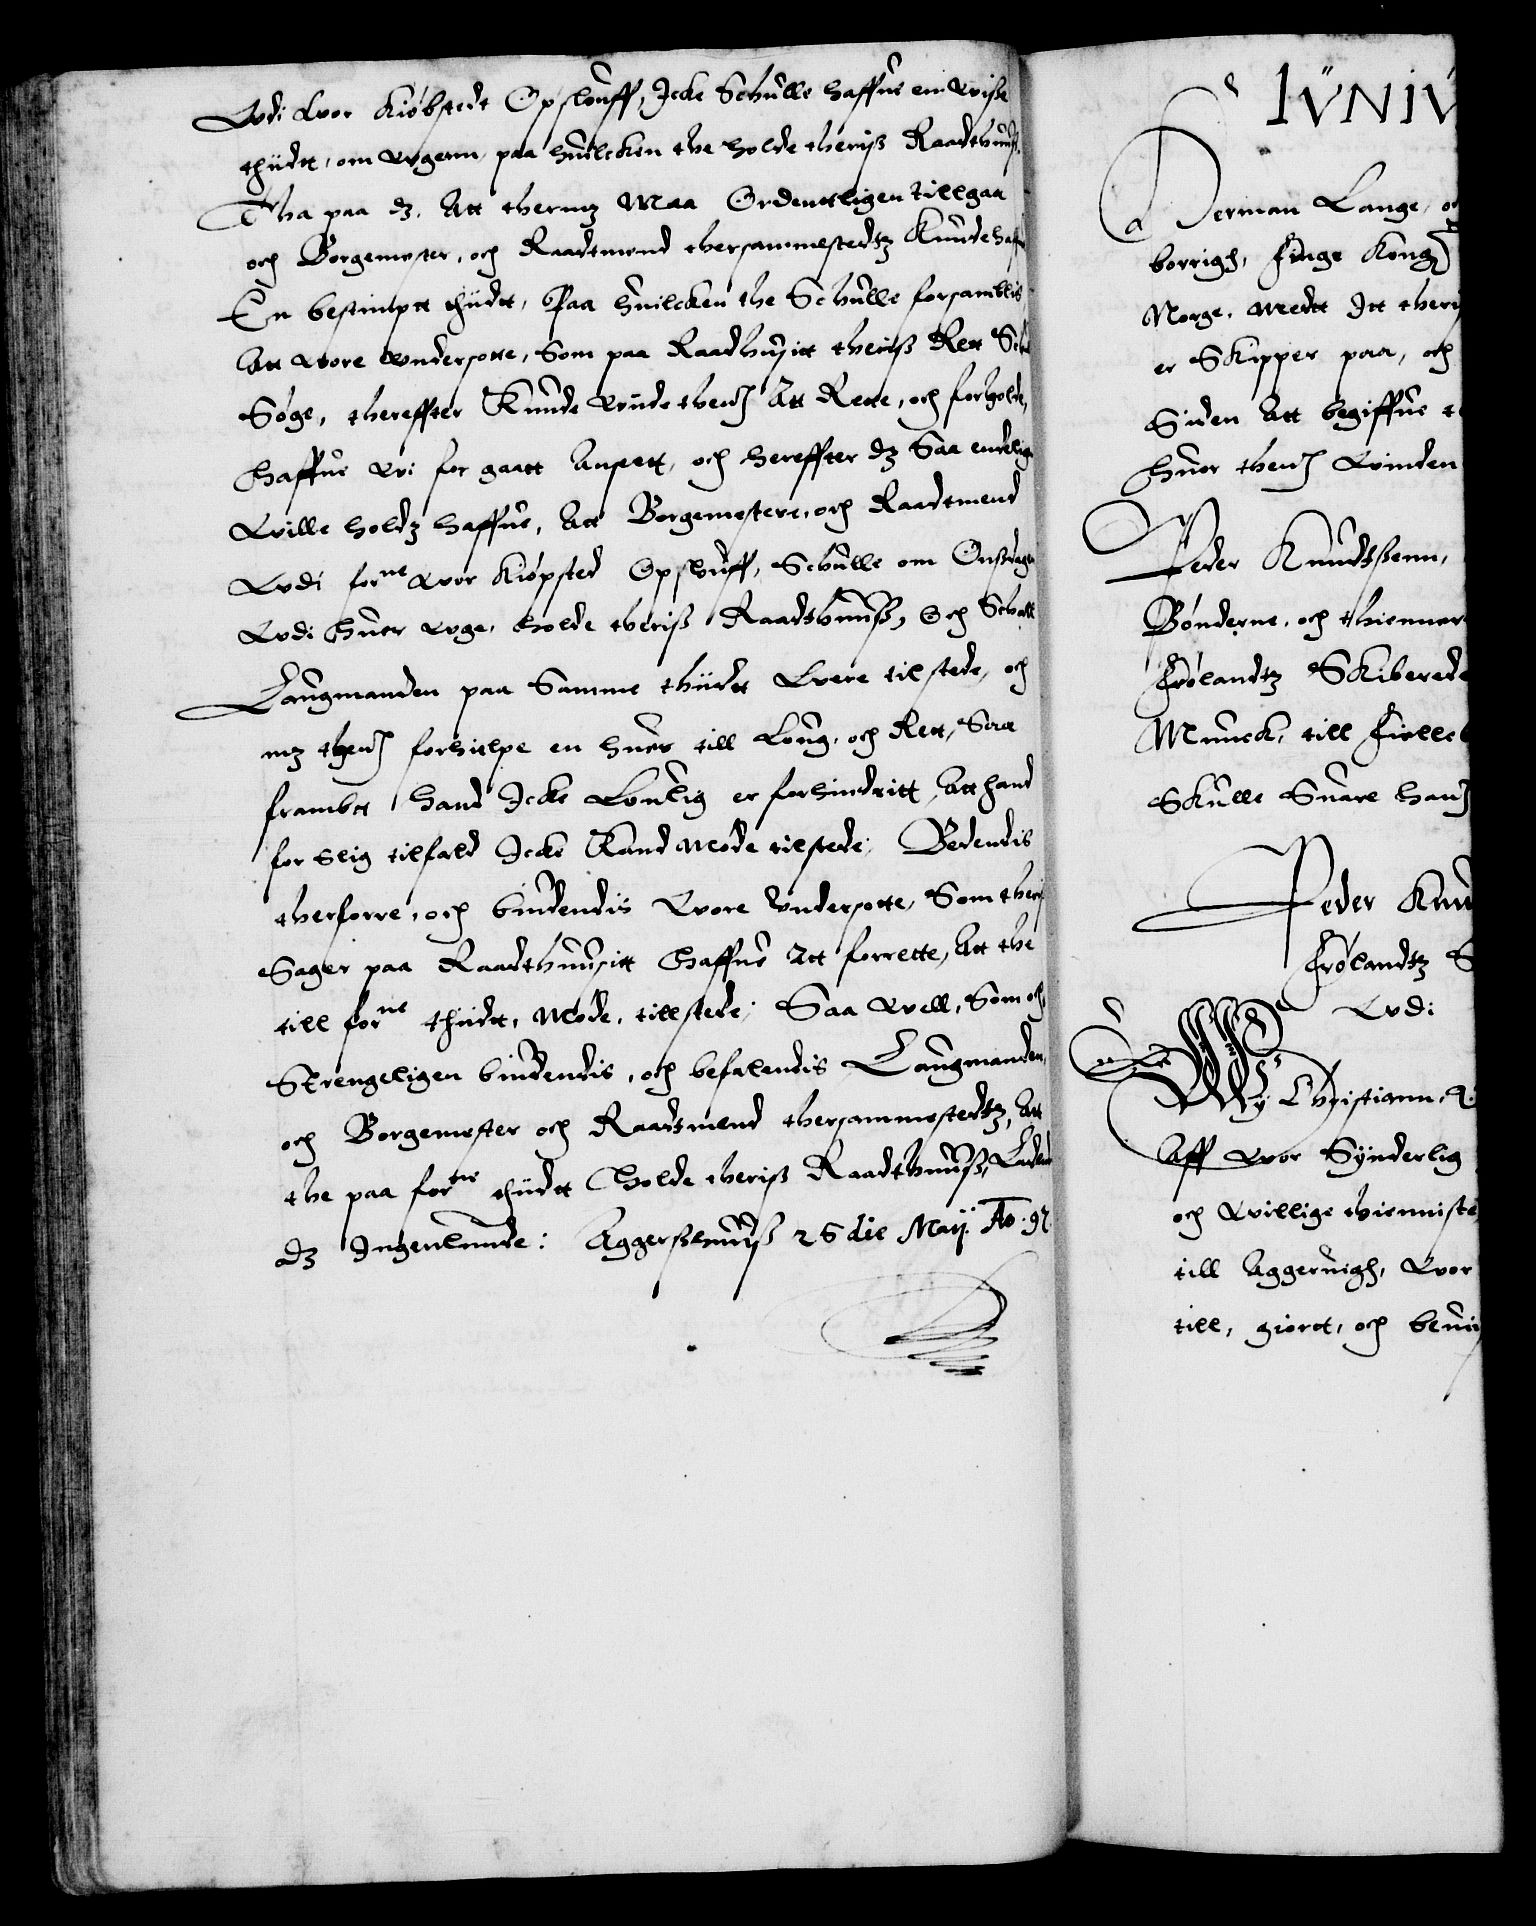 Udi vor Kiøbstedt Opslouff, Icke Schulle haffue en wisse
thiidtt, om ugenn, paa huilcken the holde theris Raadthuuß.
Tha paa dz. Att thermz Maa Ordentligen tillgaa
och Borgemester, och Raadtmend thersammestedtz Kunde haffue
En bestimptt thiidtt, Paa huilcken the Schulle forsamblis
Att wore wndersotte, som paa Raadhusitt theris Rett Schulle
Søge, thereffter Kunde wiide thend Att Rette, och forholde,
Haffue wi for gaatt Anseett, och hereffter dz Saa endeligen
Wille holdz haffue, Att Borgemestere, och Raadtmend
Udi forne wor Kiøpsted Opslouff, Schulle om Onsdagen
Udi huer uge, holde theris Raadthuuß, Och Schall
Laugmanden paa Samme thiidtt Were tilstede, och
mz thend forhielpe en huer till Loug, och Rett, Saa
frambtt hand Icke Louligt er forhindritt, Att hand
for slig tilfald Icke Kand Møde tilstede, Bedendis
therforre, och biudendis Wore Undersotte, Som theris
Sager paa Raadthuusitt Haffue Att forrette, Att the
till forne thiidtt, Møde, tillstede, Saa well, Som och
Strengeligen biudendis, och befalendis Laugmanden,
och Borgemester och Raadtmend thersammestedtz, Att
the paa forne thiidtt Holde theris Raadthuuß, Ladendis
dz Ingenlunde: Aggershuuß 26 die Maij Ao: 97.
IVNIV
Herman Lange,
borrigh, Finge Kong
Norge, medtt Itt
er Skipper paa, och
Siden Att begiffue
huor thend Winden
Peder Knudtssenn,
Bønderne, och thienner
Frølandtz Skiberede
Munck, till
Skulle Suare hand
Peder Knud
Frølandtz S
Udi
Wy Christiann
Aff wor Synderlig
och Willige thienniste
till Aggeruigh, wor
till, giortt, och beui